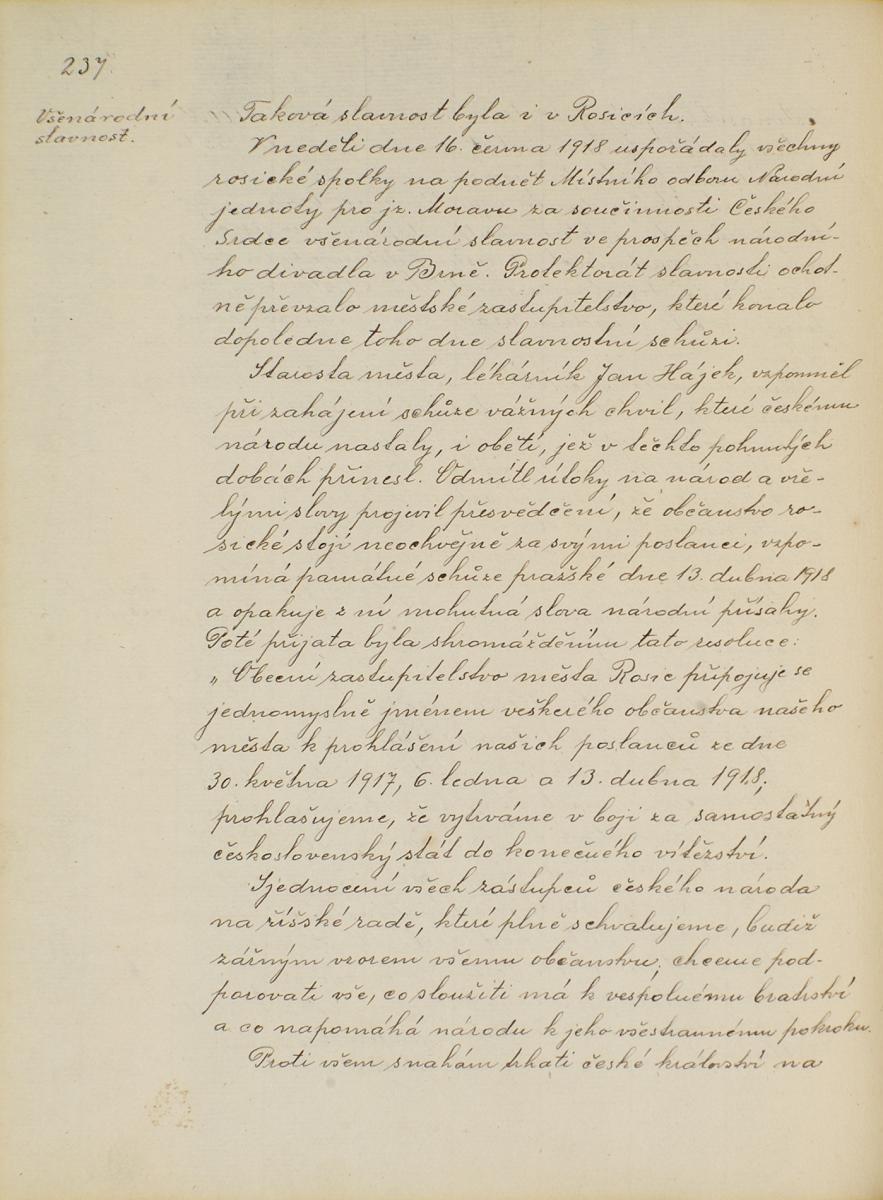 237.
Všenárodní
slavnost.
Taková slavnost byla i v Rosicích.
V neděli dne 16. června 1918 uspořádaly všechny
rosické spolky na podnět Místního odboru Národní
jednoty pro jz. Moravu za součinnosti Českého
Srdce všenárodní slavnost ve prospěch národní-
ho divadla v Brně. Protektorát slavnosti ochot-
ně převzalo městské zastupitelstvo, které konalo
dopoledne toho dne slavnostní schůzi.
Starosta města, lékárník Jan Hájek, vzpomněl
při zahájení schůze vážných chvil, které českému
národu nastaly, i obětí, jež v těchto pohnutých
dobách přinesl. Odmítl útoky na národ a vře-
lými slovy projevil přesvědčení, že občanstvo ro-
sické stojí neochvějně za svými poslanci, vzpo-
míná památné schůze pražské dne 13. dubna 1918
a opakuje z ní mohutná slova národní přísahy.
Poté přijata byla shromážděním tato resoluce:
„Obecní zastupitelstvo města Rosic připojuje se
jednomyslně jménem veškerého občanstva našeho
města k prohlášení našich poslanců ze dne
30. května 1917, 6. ledna a 13. dubna 1918;
prohlašujeme, že vytrváme v boji za samostatný
československý stát do konečného vítězství.
Sjednocení všech zástupců českého národa
na říšské radě, kteří plně schvalujeme, budiž
zářným vzorem všemu občanstvu; chceme pod-
porovati vše, co sloužiti má k vespolnému bratrství
a co napomáhá národu k jeho všestrannému pokroku.
Proti všem snahám trhati české království na